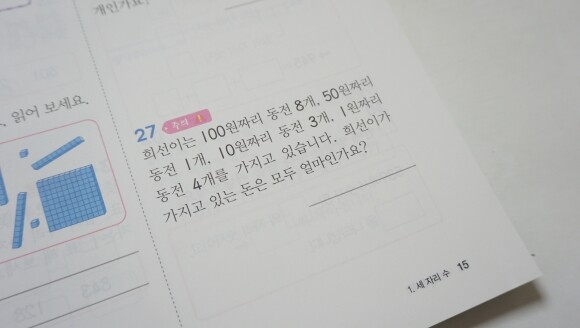 개인가요?
읽어 보세요.
27 주의
희선이는 100원짜리 동전 8개, 50원짜리
동전 1개, 10원짜리 동전 3개, 1원짜리
동전 4개를 가지고 있습니다. 희선이가
가지고 있는 돈은 모두 얼마인가요?
1. 세 자리 수 15